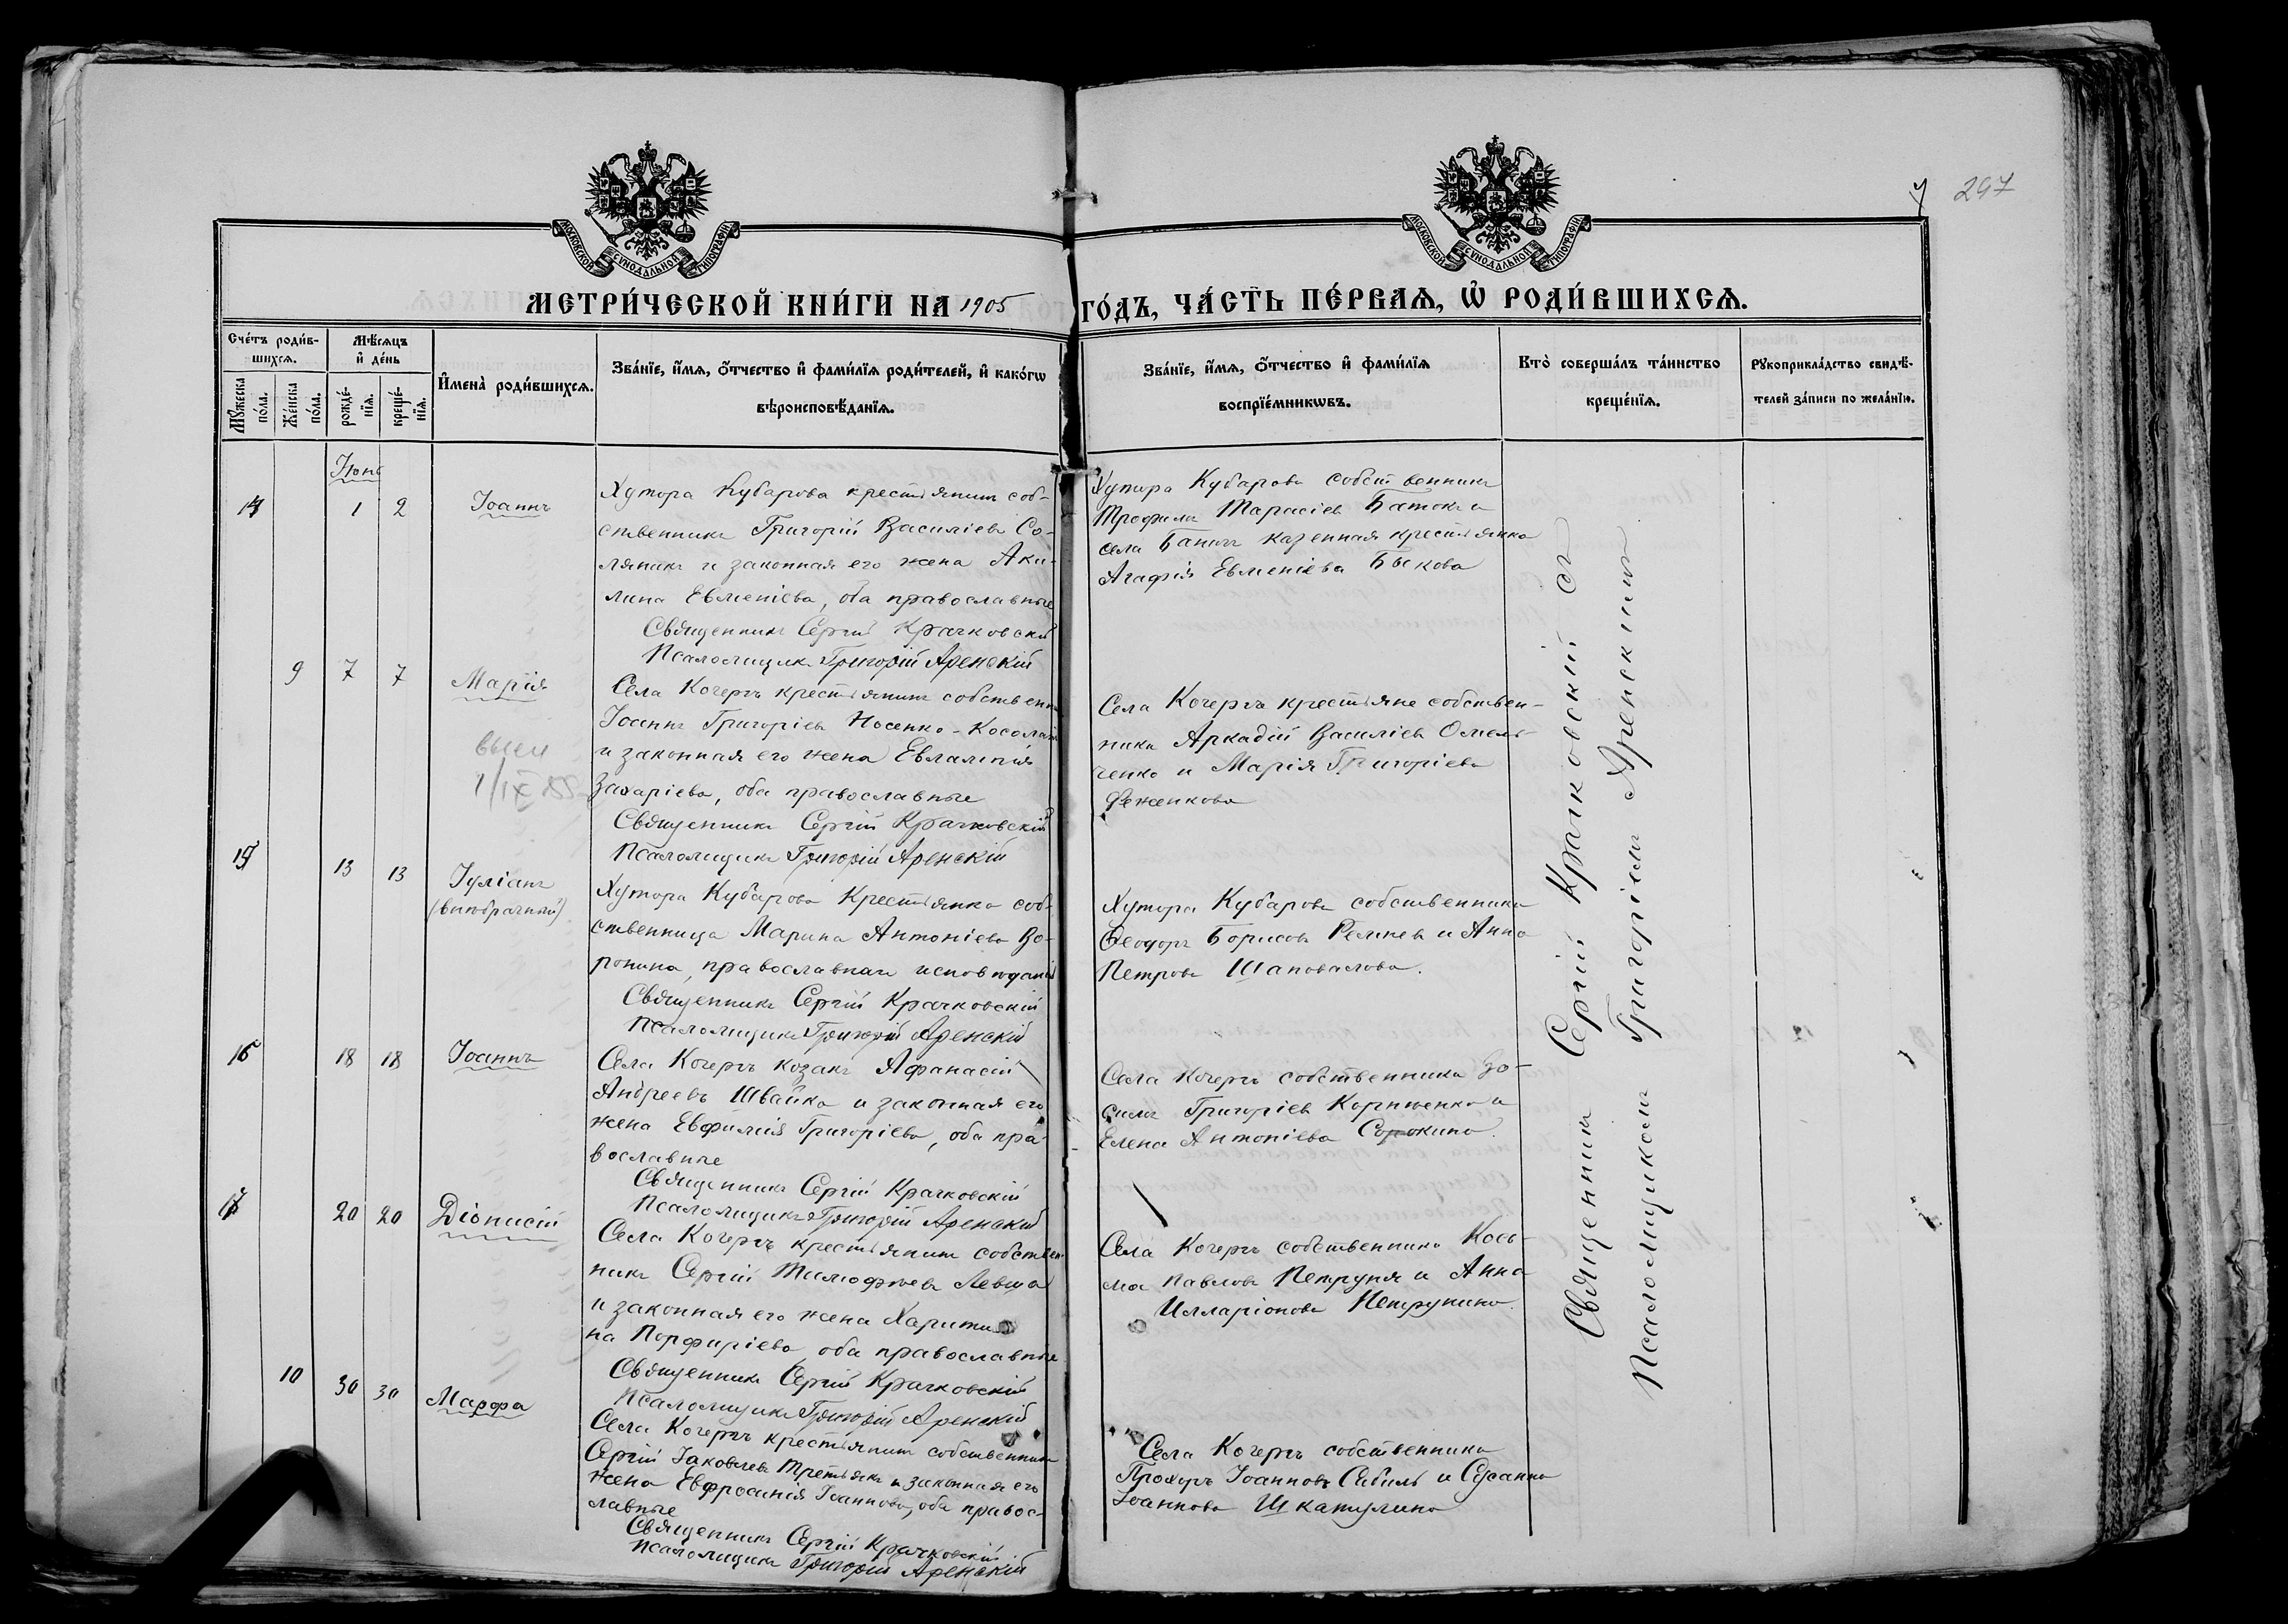 МОСКОВСКОЙ СѴНОДАЛЬНОЙ ТИПОГРАФІИ
МОСКОВСКОЙ СѴНОДАЛЬНОЙ ТИПОГРАФІИ
297
МЕТРИ́ЧЕСКОЙ КНИ́ГИ НА 1905 ГО́ДЪ, ЧА́СТЬ ПЕ́РВАѦ, Ѡ҆ РОДИ́ВШИХСѦ.
Сче́тъ роди́в-
шихсѧ.
Мꙋ́жеска по́ла.
Же́нска по́ла.
Мѣ́сѧцъ
и҆ де́нь
рожде́-нїѧ.
креще́-нїѧ.
И҆мена̀ роди́вшихсѧ.
Зва́нїе, и҆́мѧ, ѻ҆́тчество и҆ фами́лїѧ роди́телей, и҆ како́гѡ
вѣроисповѣ́данїѧ.
Зва́нїе, и҆́мѧ, ѻ҆́тчество и҆ фами́лїѧ
воспрїе́мникѡвъ.
Кто̀ соверша́лъ та́инство
креще́нїѧ.
Рꙋкоприкла́дство свидѣ́-
телей за́писи по жела́нїю.
Іюнь
14 1 2 Іоаннъ
Хутора Кубарова крестьянинъ соб-
ственникъ Григорій Василіевъ Со-
ляникъ и законная его жена Аки-
лина Евменіева, оба православные
Священникъ Сергій Крачковскій
Псаломщикъ Григорій Аренскій
Хутора Кубарова собственникъ
Трофимъ Тарасіевъ Батокъ и
села казенная крестьянка
Агафія Евменіева Быкова
9 7 7 Марія
1/IX
Села Кочергъ крестьянинъ собствен
Іоаннъ Григоріевъ Носенко-Косола
и законная его жена Евлампія
Захаріева, оба православные
Священникъ Сергій Крачковскій
Псаломщикъ Григорій Аренскій
Села Кочергъ крестьяне собствен-
ники Аркадій Василіевъ Омель-
ченко и Марія Григоріева
15 13 13 Іуліанъ
(внебрачный)
Хутора Кубарова крестьянка соб-
ственница Марина Антоніева Во-
ронина, православнаго исповѣданія
Священникъ Сергій Крачковскій
Псаломщикъ Григорій Аренскій
Хутора Кубарова собственники
Ѳеодоръ Борисовъ и Анна
Петрова Шаповалова.
16 18 18 Іоаннъ
Села Кочергъ козакъ Афанасій
Андреевъ Швайка и законная его
жена Евфимія Григоріева, оба пра-
вославные
Священникъ Сергій Крачковскій
Псаломщикъ Григорій Аренскій
Села Кочергъ собственники Ва-
силій Григоріевъ Корниенко и
Елена Антоніева Сорокина.
17 20 20 Діонисій
Села Кочергъ крестьянинъ собствен
никъ Сергій Тимофѣевъ Левша
и законная его жена Харити-
на Порфиріева, оба православные
Священникъ Сергій Крачковскій
Псаломщикъ Григорій Аренскій
Села Кочергъ собственники Кось-
ма Павловъ Петруня и Анна
Илларіонова Петрунина.
10 30 30 Марфа
Села Кочергъ крестьянинъ собственникъ
Сергій Іаковлевъ Третьякъ и законная его
жена Евфросинія Іоаннова, оба правос-
лавные
Священникъ Сергій Крачковскій
Псаломщикъ Григорій Аренскій
Села Кочергъ собственники
Прохоръ Іоанновъ и Сусанна
Іоаннова Шкатулина
Священникъ Сергій Крачковскій съ
Псаломщикомъ Григоріемъ Аренскимъ